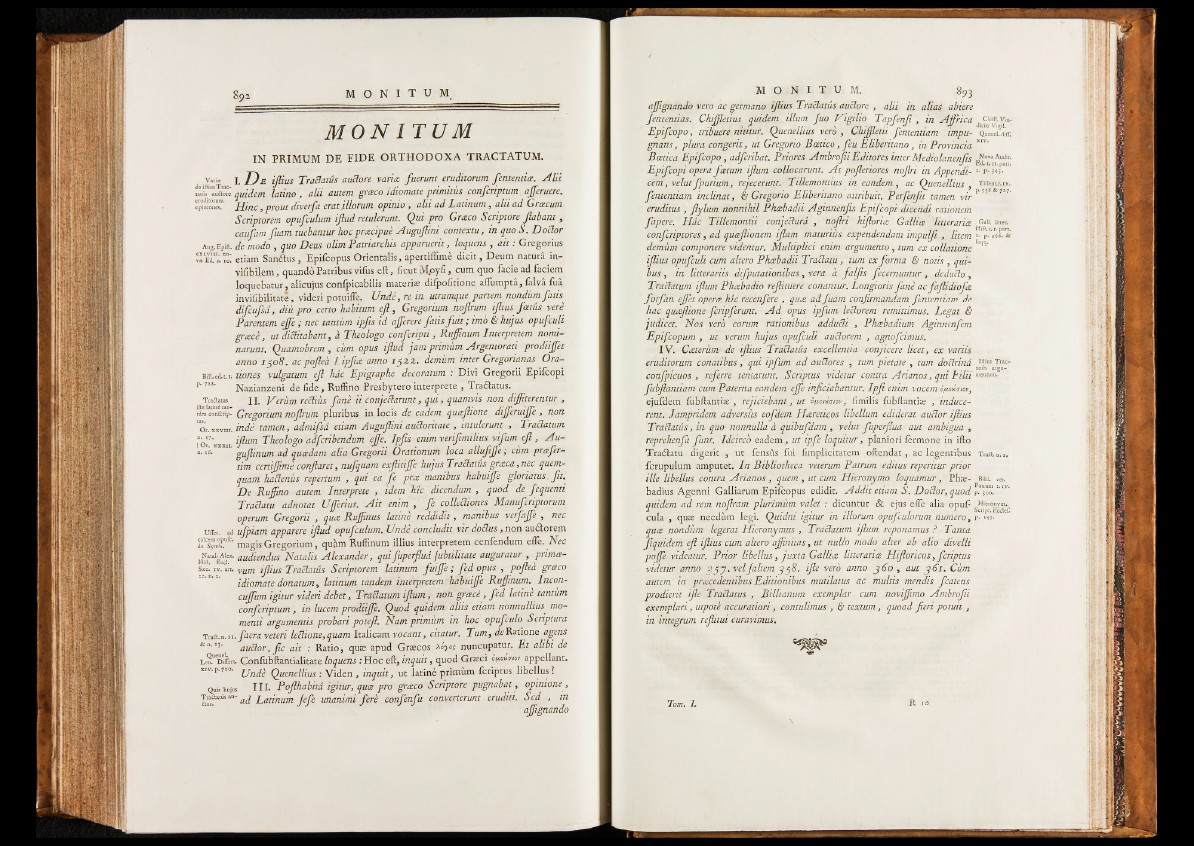 892 MONITUM.
MONITUM
IN PRIMUM DE FIDE ORTHODOXA TRACTATUM.
Variæ
de istius Trac-
tatûs auctore
eruditorum
opiniones.
I. DE istius Tractatûs auctore variæ fuerunt eruditorum sententiæ. Alii
quidem latino, alii autem græco idiomate primitùs conscriptum asseruere.
Hinc, prout diversa erat illorum opinio, alii ad Latinum, alii ad Græcum
Scriptorem opusculum istud retulerunt. Qui pro Græco Scriptore stabant,
causam suam tuebantur hoc præcipuè Augustini contextu, in quo S. Doctor
Aug. Epist.
CXLVIII. no-
væ Ed. n. 10.
de modo, quo Deus olim Patriarchis apparuerit, loquens, ait : Gregorius
etiam Sanctus, Episcopus Orientalis, apertissimè dicit, Deum naturâ in-
visibilem, quandò Patribus visus est, sicut Moysi, cum quo facie ad faciem
loquebatur, alicujus conspicabilis materiæ dispositione assumptâ, salvâ suâ
invisibilitate, videri potuisse. Undè, re in utramque partem nondùm satis
discussâ, diù pro certo habitum est, Gregorium nostrum istius fœtûs verè
Parentem esse ; nec tantùm ipsis id asserere satis fuit ; imò & hujus opusculi
græcè, ut dictitabant, à Theologo conscripti, Ruffinum Interpretem nomi-
narunt. Quamobrem, cùm opus istud jam primùm Argentorati prodiisset
anno 1508, ac posteà Lipsiæ anno 1522. demùm inter Gregorianas Ora-
Bill. edit. t. 1.
p. 728.
tiones vulgatum est hâc Epigraphe decoratum : Divi Gregorii Episcopi
Nazianzeni de fide, Ruffino Presbytero interprete, Tractatus.
Tractatus
iste latinè tan-
tùm conscrip-
tus.
II. Verùm rectiùs sanè ii conjectarunt, qui, quamvis non diffiterentur,
Gregorium nostrum pluribus in locis de eadem quæstione disseruisse, non
Or. XXVIII.
n. 17.
indè tamen, admissâ etiam Augustini auctoritate, intulerunt, Tractatum
istum Theologo adscribendum esse. Ipsis enim verisimilius visum est, Au-
Or. XXXII.
n. 16.
gustinum ad quædam alia Gregorii Orationum loca allusisse ; cùm præser-
tim certissimè constaret, nusquam exstitisse hujus Tractatûs græca, nec quem-
quam hactenùs repertum, qui ea se præ manibus habuisse gloriatus sit.
De Ruffino autem Interprete, idem hîc dicendum, quod de sequenti
Tractatu adnotat Usserius. Ait enim, se collectiones Manuscriptorum
operum Gregorii, quæ Ruffinus latinè reddidit, manibus versasse, nec
Usser. ad
calcem opusc.
de Symb.
uspiam apparere istud opusculum. Undè concludit vir doctus, non auctorem
magis Gregorium, quàm Ruffinum illius interpretem censendum esse. Nec
Natal. Alex.
Hist. Eccl.
Sæc. IV. art.
audiendus Natalis Alexander, qui superfluâ subtilitate auguratur, primæ-
vum istius Tractatûs Scriptorem latinum fuisse ; sed opus, posteà græco
idiomate donatum, latinum tandem interpretem habuisse Ruffinum. Incon-
cussum igitur videri debet, Tractatum istum, non græcè, sed latinè tantùm
conscriptum, in lucem prodiisse. Quod quidem aliis etiam nonnullius mo-
menti argumentis probari potest. Nam primùm in hoc opusculo Scriptura
Tract. n. 11.
& n. 13.
sacra veteri lectione, quam Italicam vocant, citatur. Tum, de Ratione agens
auctor, sic ait : Ratio, quæ apud Græcos λόγος nuncupatur. Et alibi de
Quesnel.
Leo. Disser.
XIV. p. 720.
Consubstantialitate loquens : Hoc est, inquit, quod Græci ὁμοούσιον appellant.
Undè Quenellius : Viden, inquit, ut latinè primùm scriptus libellus ?
Quis hujus
Tractatûs au-
ctor.
III. Posthabitâ igitur, quæ pro græco Scriptore pugnabat, opinione,
ad Latinum sese unanimi ferè consensu converterunt eruditi. Sed, in
assignando
MONITUM. 893
assignando vero ac germano istius Tractatûs auctore, alii in alias abiere
sententias. Chiffletius quidem illum suo Vigilio Tapsensi, in Affrica
Chiff. Vin-
diciæ Vigil.
Episcopo, tribuere nititur. Quenellius verò, Chiffletii sententiam impu-
Quesnel. diss.
XIV.
gnans, plura congerit, ut Gregorio Bætico, seu Eliberitano, in Provincia
Bætica Episcopo, adscribat. Priores Ambrosii Editores inter Mediolanensis
Nova Ambr.
Ed. t. II. part.
2. p. 345.
Episcopi opera fœtum istum collocarunt. At posteriores nostri in Appendi-
cem, velut spurium, rejecerunt. Tillemontius in eandem, ac Quenellius,
Tillem. t. IX.
p. 538 & 727.
sententiam inclinat, & Gregorio Eliberitano attribuit. Persensit tamen vir
eruditus, stylum nonnihil Phœbadii Aginnensis Episcopi dicendi rationem
sapere. Hâc Tillemontii conjecturâ, nostri historiæ Galliæ litterariæ
Gall. litter.
Hist. t. 1. part.
2. p. 266. &
conscriptores, ad quæstionem istam maturiùs expendendam impulsi, litem
demùm componere videntur. Multiplici enim argumento, tum ex collatione
istius opusculi cum altero Phœbadii Tractatu, tum ex forma & notis, qui-
bus, in litterariis disputationibus, vera à falsis secernuntur, deducto,
Tractatum istum Phœbadio restituere conantur. Longioris sanè ac fastidiosæ
forsan esset operæ hîc recensere, quæ ad suam confirmandam sententiam de
hac quæstione scripserunt. Ad opus ipsum lectorem remittimus. Legat &
judicet. Nos verò eorum rationibus adducti, Phœbadium Aginnensem
Episcopum, ut verum hujus opusculi auctorem, agnoscimus.
IV. Cæterùm de istius Tractatûs excellentia conjicere licet, ex variis
eruditorum conatibus, qui ipsum ad auctores, tum pietate, tum doctrinâ
Istius Trac-
tatûs argu-
mentum.
conspicuos, referre tentarunt. Scriptus videtur contra Arianos, qui Filii
substantiam cum Paterna eandem esse inficiabantur. Ipsi enim vocem ὁμοούσιον,
ejusdem substantiæ, rejiciebant, ut ὁμοιούσιον, similis substantiæ, induce-
rent. Jampridem adversùs eosdem Hæreticos libellum ediderat auctor istius
Tractatûs, in quo nonnulla à quibusdam, velut superflua aut ambigua,
reprehensa sunt. Idcircò eadem, ut ipse loquitur, planiori sermone in isto
Tractatu digerit, ut sensûs sui simplicitatem ostendat, ac legentibus
Tract. n. 2.
scrupulum amputet. In Bibliotheca veterum Patrum editus reperitur prior
ille libellus contra Arianos, quem, ut cum Hieronymo loquamur, Phœ-
Bibl. vet.
Patrum t. IV.
p. 300.
badius Agenni Galliarum Episcopus edidit. Addit etiam S. Doctor, quod
quidem ad rem nostram plurimùm valet : dicuntur & ejus esse alia opus-
Hieronym.
Script. Eccles.
cula, quæ necdùm legi. Quidni igitur in illorum opusculorum numero,
quæ nondùm legerat Hieronymus, Tractatum istum reponamus ? Tanta
siquidem est istius cum altero affinitas, ut nullo modo alter ab alio divelli
posse videatur. Prior libellus, juxta Galliæ litterariæ Historicos, scriptus
videtur anno 357. vel saltem 358. iste verò anno 360, aut 361. Cùm
autem in præcedentibus Editionibus mutilatus ac multis mendis scatens
prodierit iste Tractatus, Billianum exemplar cum novissimo Ambrosii
exemplari, utpotè accuratiori, contulimus, & textum, quoad fieri potuit,
in integrum restitui curavimus.
Tom. I.